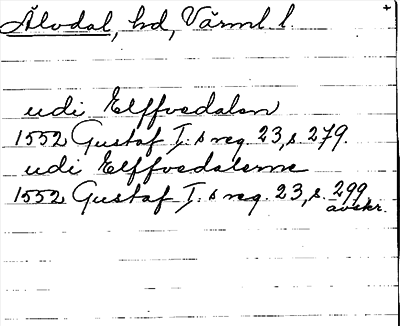 Älvdal, hd, Värml. l. +
udi Elffvedalen
1552 Gustaf I:s reg. 23, s. 279.
udi Elffvedalenne
1552 Gustaf I:s reg. 23, s. 299
avskr.